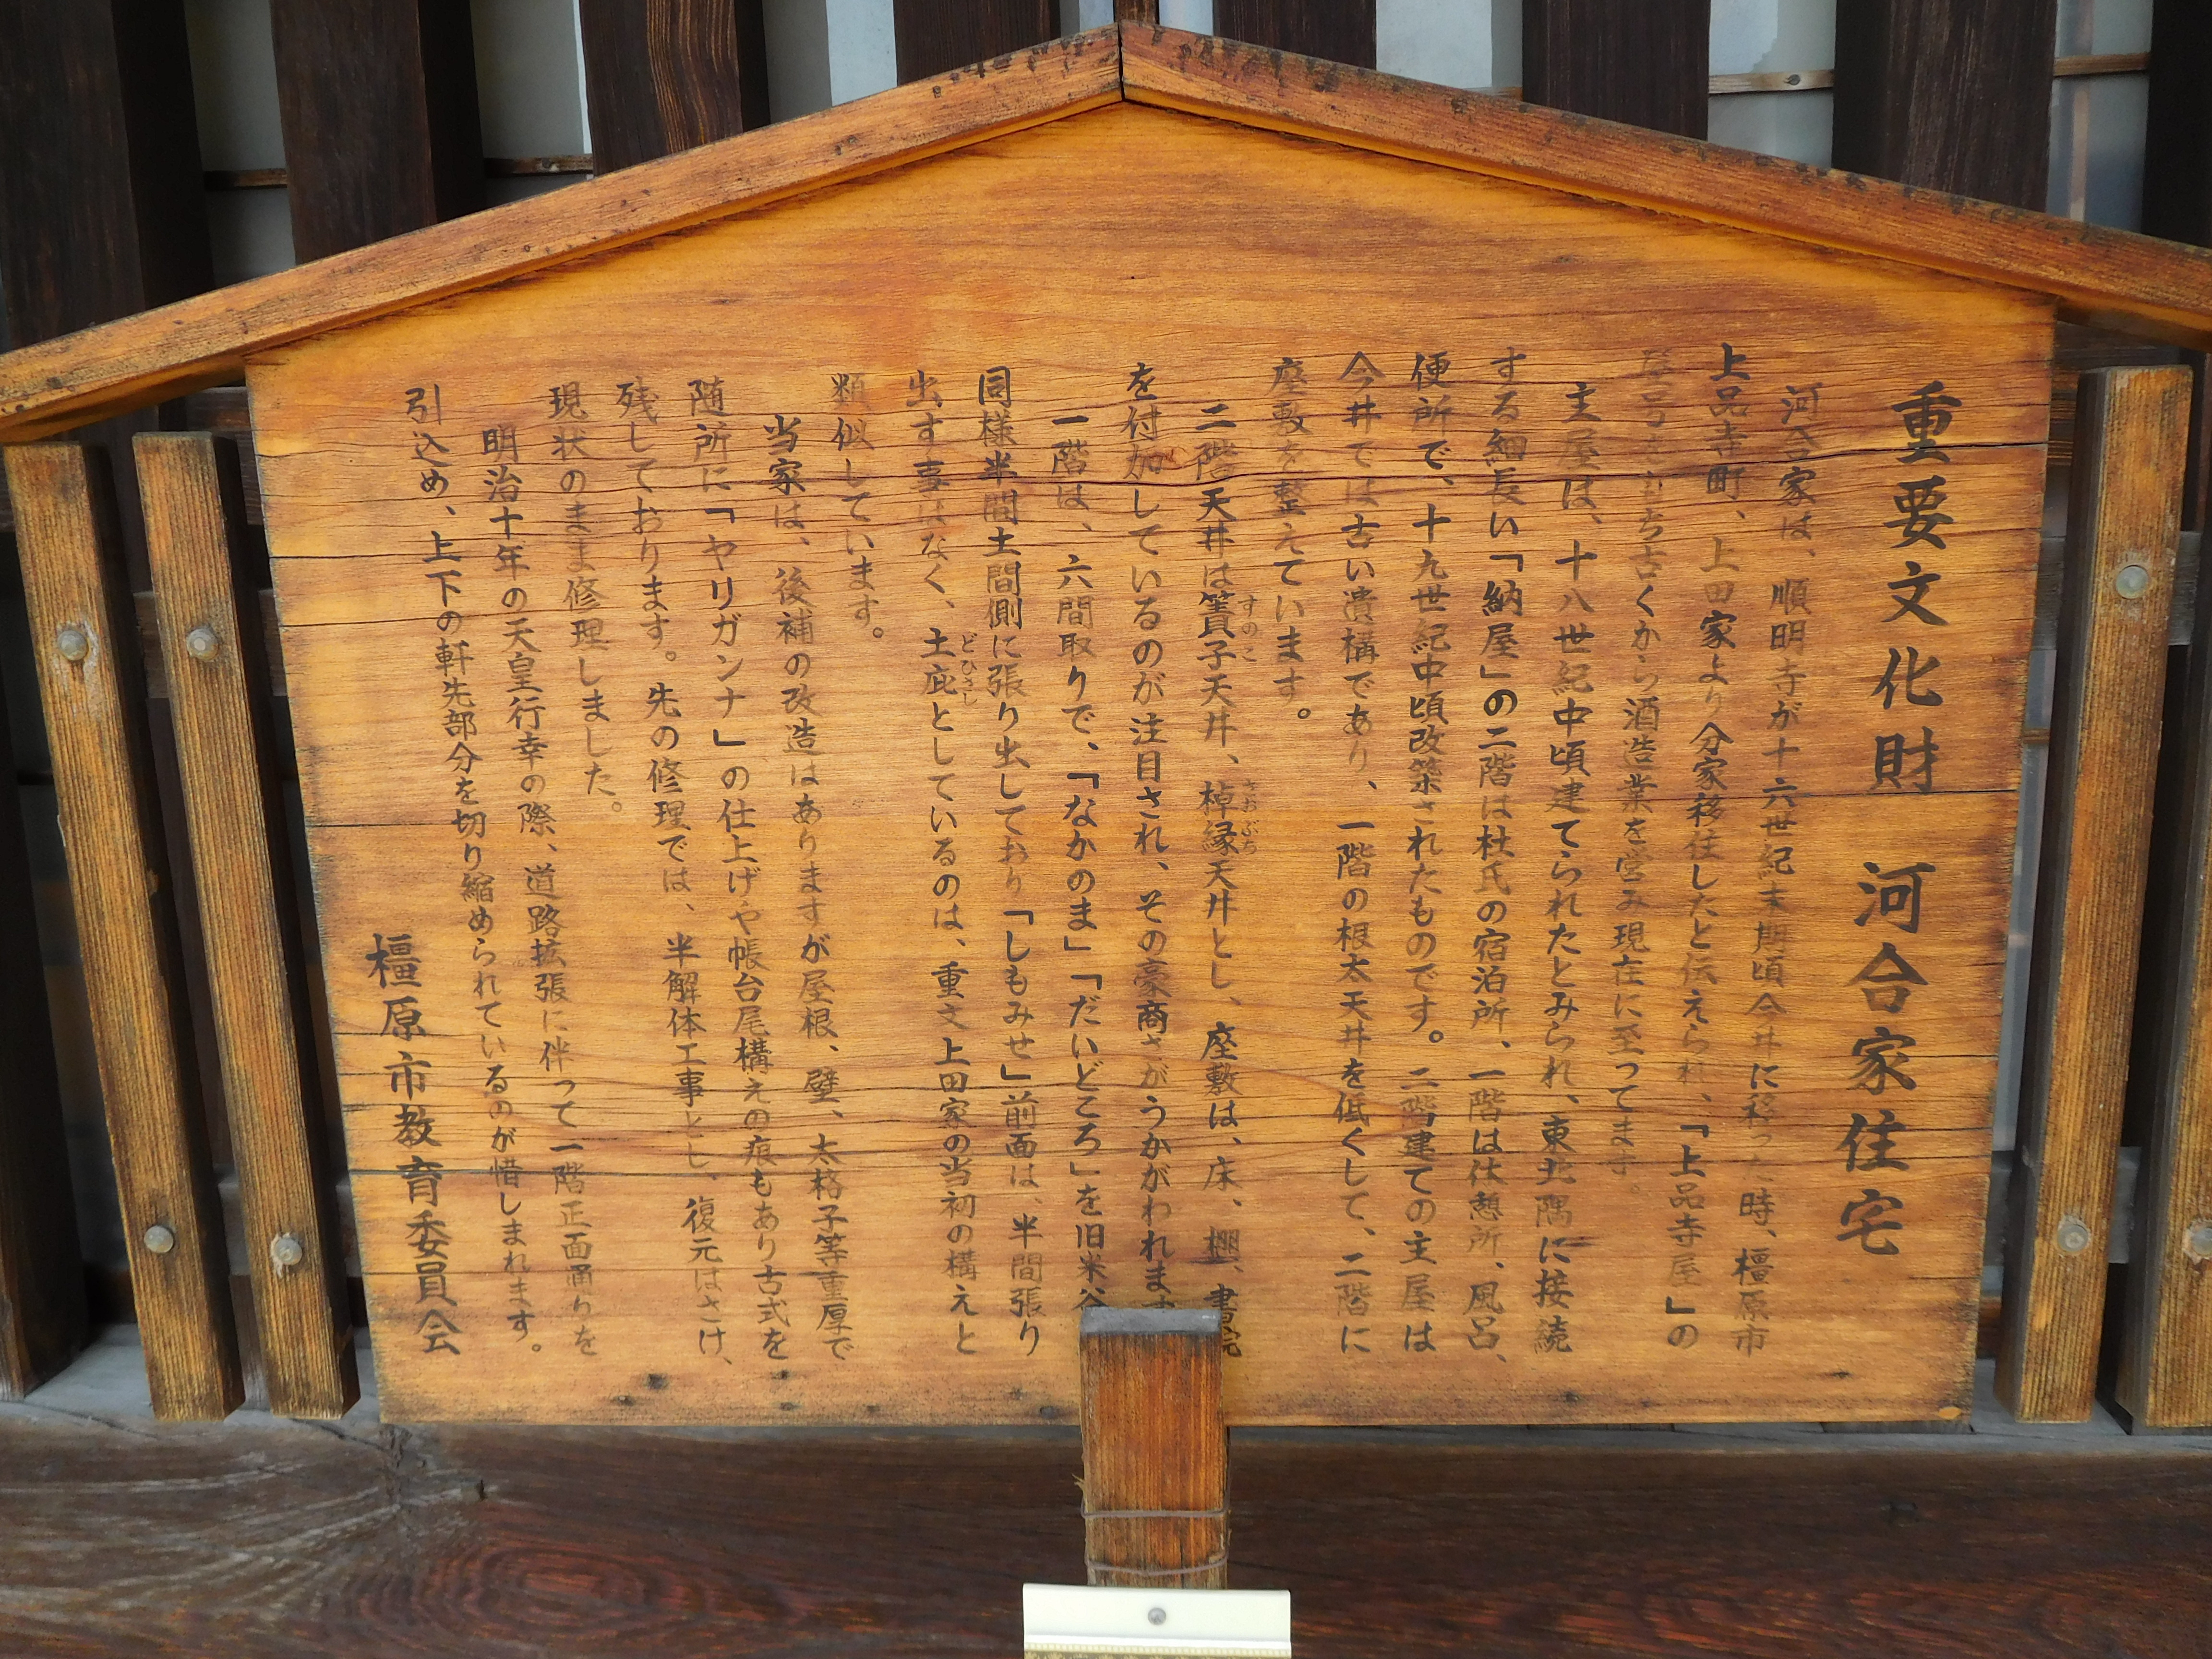 重要文化財 河合家住宅
河合家は、順明寺が十六世紀末期頃今井に移った時、橿原市
上品寺町、上田家より分家移住したと伝えられ、「上品寺屋」の
屋号をもち古くから酒造業を営み現在に至ってます。
主屋は、十八世紀中頃建てられたとみられ、東北隅に接続
する細長い「納屋」の二階は杜氏の宿泊所、一階は休憩所、風呂、
便所で、十九世紀中頃改築されたものです。二階建ての主屋は
今井では古い遺構であり、一階の根太天井を低くして、二階に
座敷を整えています。
二階天井は簀子天井、棹縁天井とし、座敷は、床、棚、書院
すのこ さおぶち
を付加しているのが注目され、その豪商さがうかがわれます
一階は、六間取りで、「なかのま」「だいどころ」を旧米谷
同様半間土間側に張り出しており「しもみせ」前面は、半間張り
出す事はなく、土庇としているのは、重文上田家の当初の構えと
どひさし
類似しています。
当家は、後補の改造はありますが屋根、壁、太格子等重厚で
随所に「ヤリガンナ」の仕上げや帳台尾構えの痕もあり古式を
残しております。先の修理では、半解体工事とし、復元はさけ、
現状のまま修理しました。
明治十年の天皇行幸の際、道路拡張に伴って一階正面通りを
引込め、上下の軒先部分を切り縮められているのが惜しまれます。
橿原市教育委員会